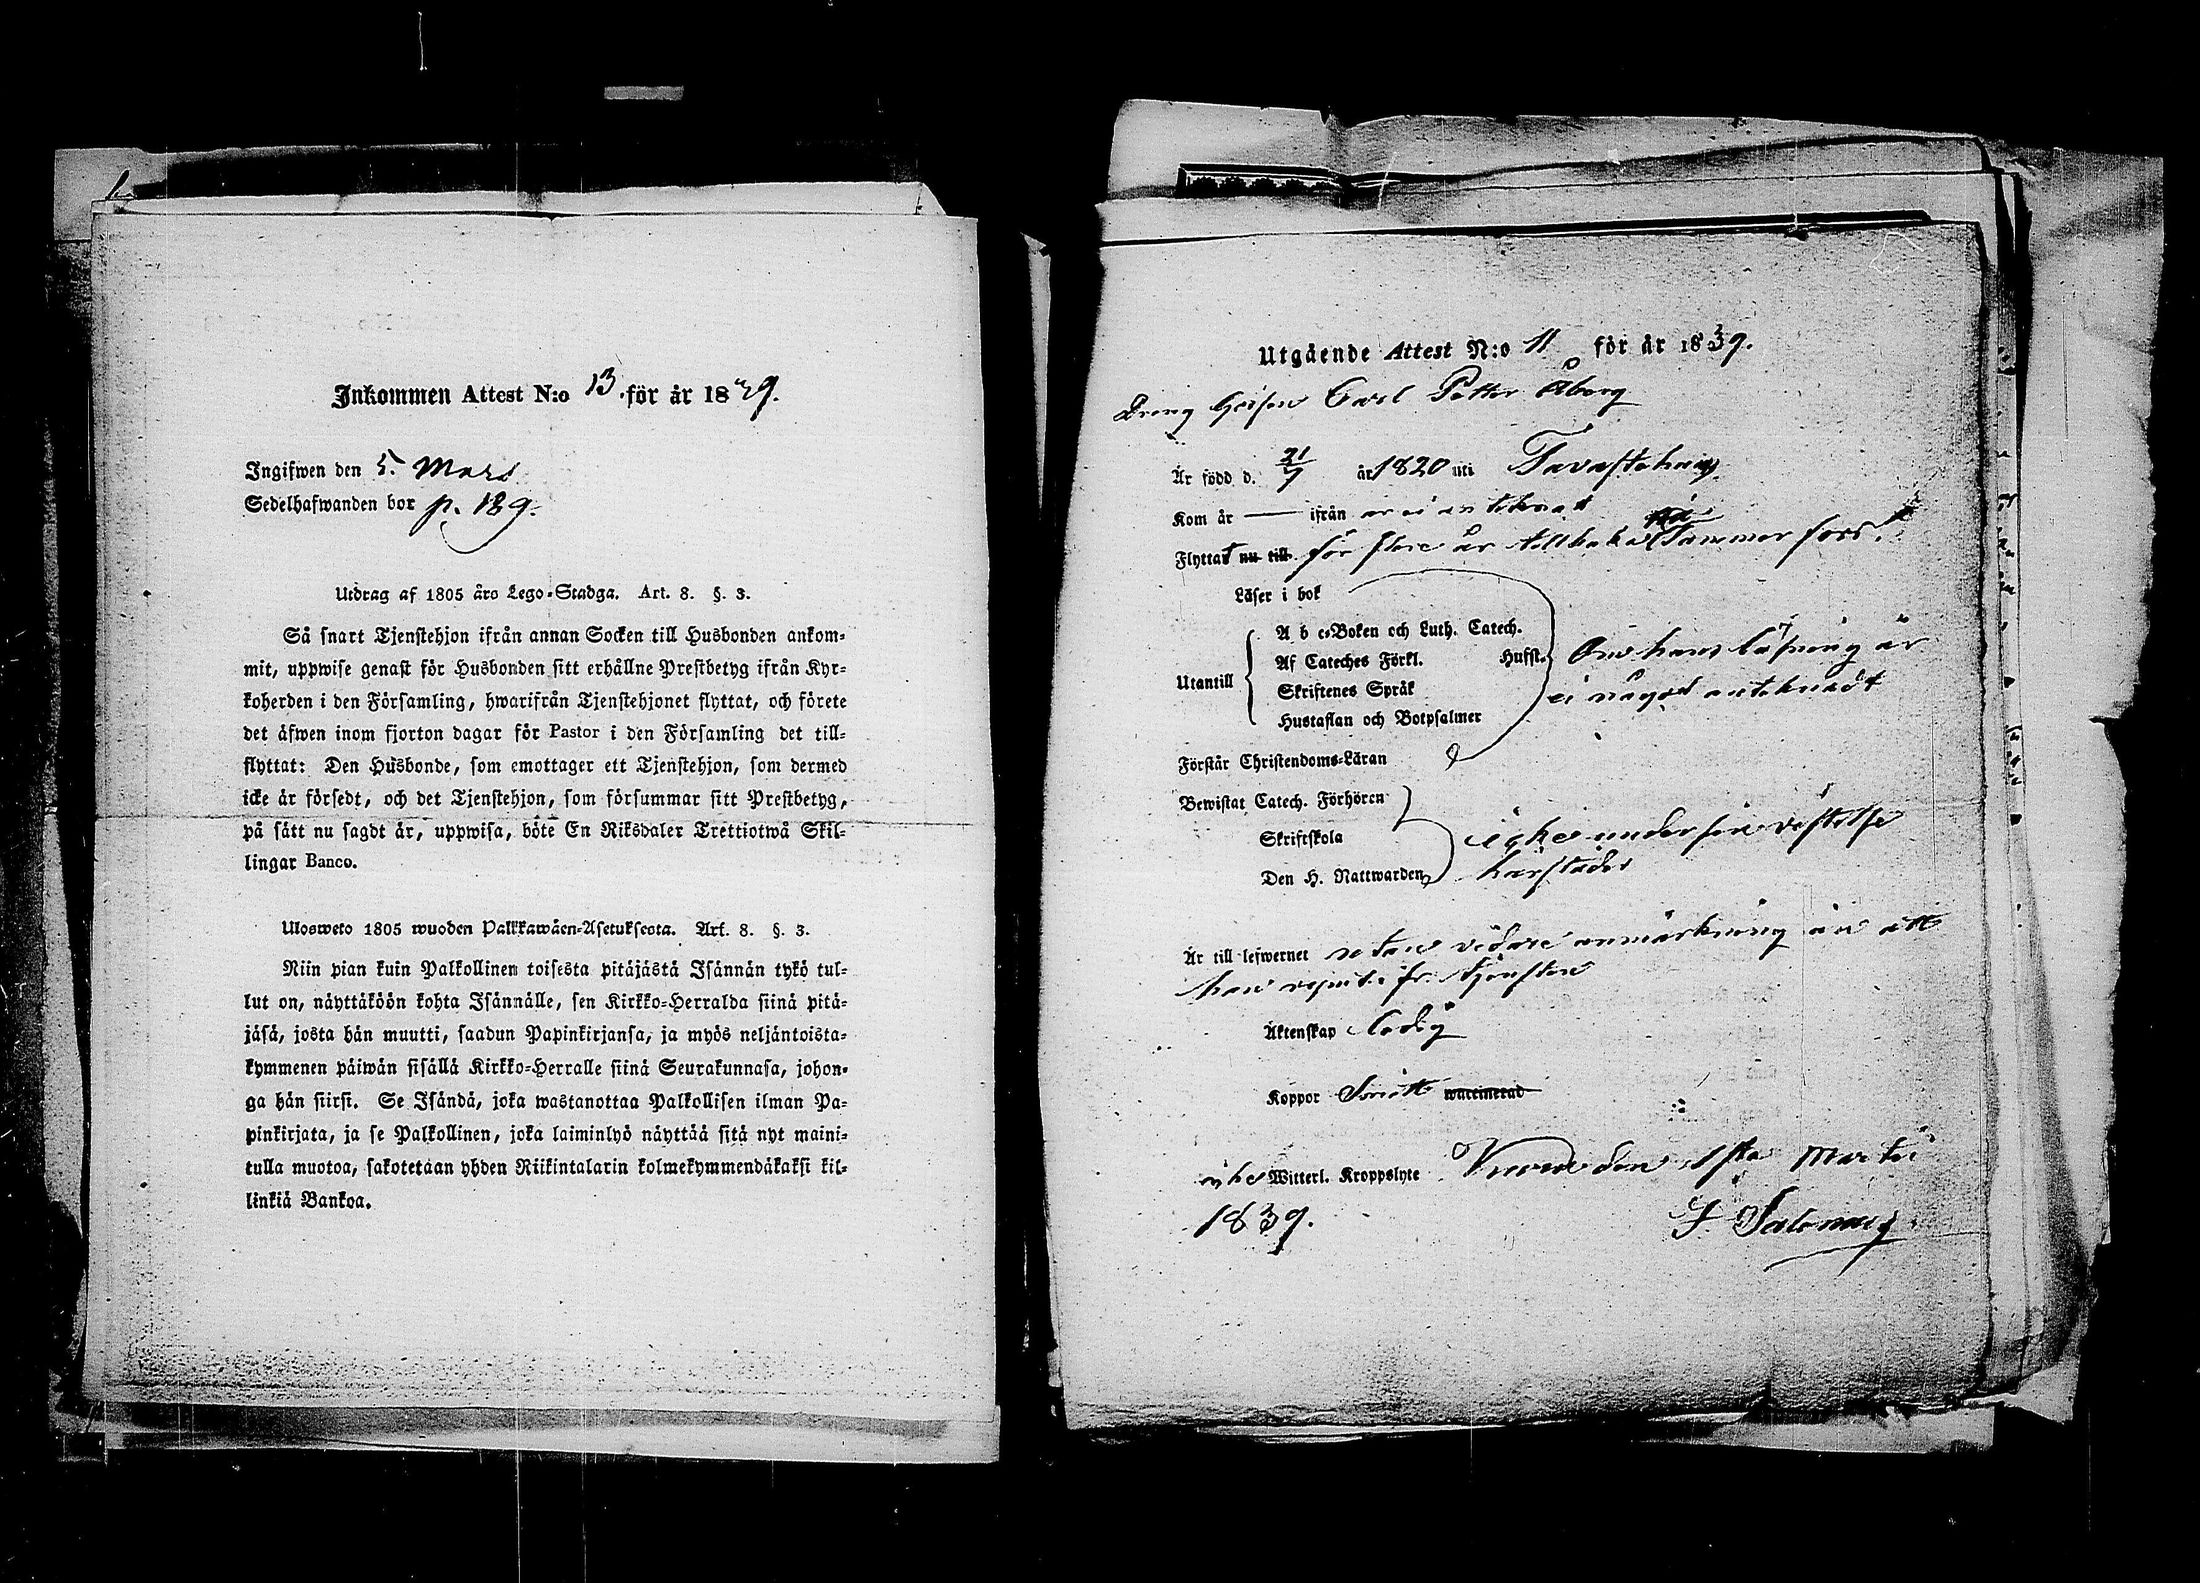 Inkommen Attest N:o 13. för år 1839.
Ingifwen den 5. Mars
Sedelhafwanden bor p. 189.
Utdrag af 1805 års Lego-Stadga. Art. 8. §. 3.
Så snart Tjenstehjon ifrån annan Socken till Husbonden ankom-
mit, uppwise genast för Husbonden sitt erhållne Prestbetyg ifrån Kyr-
koherden i den Församling, hwarifrån Tjenstehjonet flyttat, och förete
det äfwen inom fjorton dagar för Pastor i den Församling det till-
flyttat: Den Husbonde, som emottager ett Tjenstehjon, som dermed
icke är försedt, och det Tjenstehjon, som försummar sitt Prestbetyg,
på sätt nu sagdt är, uppwisa, böte En Riksdaler Trettiotwå Skil-
lingar Banco.
Ulosweto 1805 wuoden Palkkawäen-Asetuksesta. Art. 8. §. 3.
Niin pian kuin Palkollinen toisesta pitäjästä Isännän tykö tul-
lut on, näyttäköön kohta Isännälle, sen Kirkko-Herralda siinä pitä-
jäsä, josta hän muutti, saadun Papinkirjansa, ja myös neljäntoista-
kymmenen päiwän sisällä Kirkko-Herralle siinä Seurakunnasa, johon-
ga hän siirsi. Se Isändä, joka wastanottaa Palkollisen ilman Pa-
pinkirjata, ja se Palkollinen, joka laiminlyö näyttää sitä nyt maini-
tulla muotoa, sakotetaan yhden Riikintalarin kolmekymmendäkaksi kil-
linkiä Bankoa.
Utgående Attest N:o 11 för år 1839.
Dreng Gossen Carl Petter Åberg
Är född d. 21/7 år 1820 uti Tavastehus
Kom år — ifrån är ei anteknat
Flyttat nu till för flere år tillbaka Tammerfors.
Läser i bok
A b c-Boken och Luth. Catech.
Af Cateches Förkl. Husst. Om hans läsning är
Utantill
Skriftenes Språk ei något anteknadt
Hustaflan och Botpsalmer
Förstår Christendoms-Läran
Bewistat Catech. Förhören
Skriftskola icke under sin vistelse
Den H. Nattwarden härstädes
Är till lefwernet utan vidare anmärkning än att
han tjensten
Äktenskap Ledig
Koppor vaccinerad
Witterl. Kroppslyte den 1sta Martii
1839.